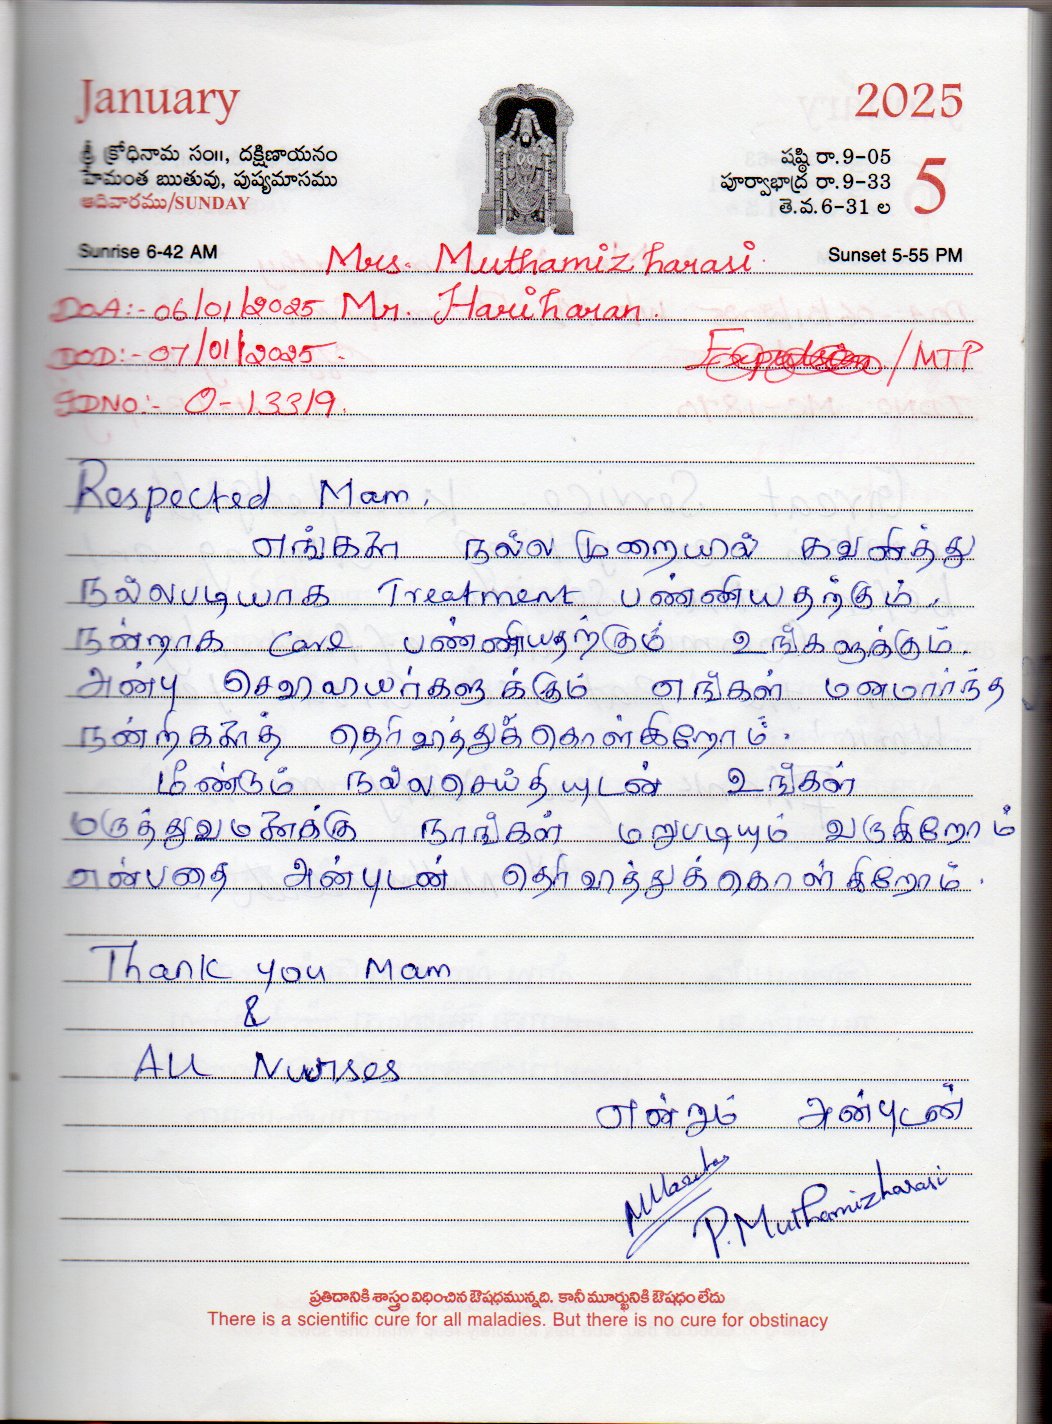 January
2025
శ్రీ క్రోధినామ సం॥, దక్షిణాయనం
హేమంత ఋతువు, పుష్యమాసము
ఆదివారము/SUNDAY
షష్ఠి రా.9-05
పూర్వాభాద్ర రా.9-33
తె.వ.6-31 ల
5
Sunrise 6-42 AM
Mrs. Muthamizharasi.
Sunset 5-55 PM
DOA:- 06/01/2025 Mr. Hariharan.
DOD:- 07/01/2025.
/MTP
IDNO:- O-13319.
Respected Mam,
எங்களை நல்ல முறையில் கவனித்து
நல்லபடியாக Treatment பண்ணியதற்கும்,
நன்றாக Care பண்ணியதற்கும் உங்களுக்கும்.
அன்பு செவிலியர்களுக்கும் எங்கள் மனமார்ந்த
நன்றிகளைத் தெரிவித்துக்கொள்கிறோம்.
மீண்டும் நல்லசெய்தியுடன் உங்கள்
மருத்துவமனைக்கு நாங்கள் மறுபடியும் வருகிறோம்
என்பதை அன்புடன் தெரிவித்துக்கொள்கிறோம்.
Thank you Mam
&
All Nurses
என்றும் அன்புடன்
P. Muthamizharasi
ప్రతిదానికి శాస్త్రం విధించిన ఔషధమున్నది. కానీ మూర్ఖునికి ఔషధం లేదు
There is a scientific cure for all maladies. But there is no cure for obstinacy